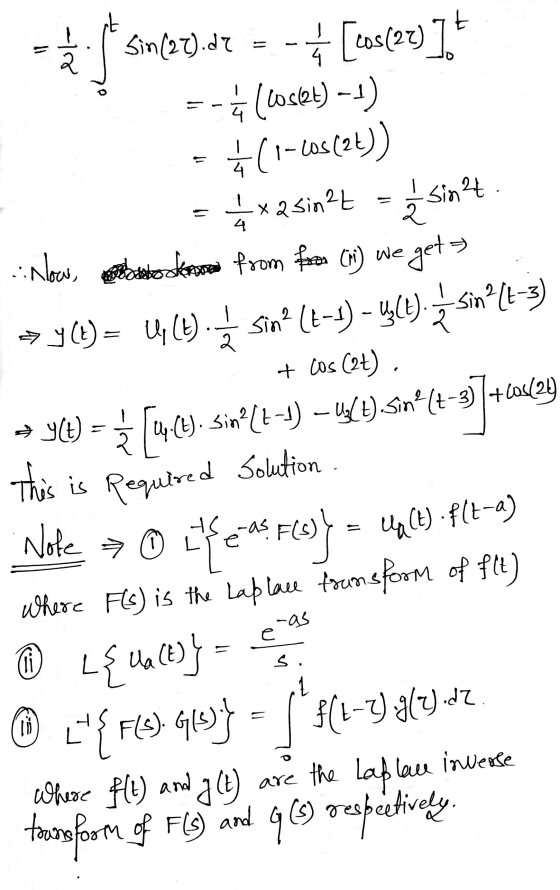 = 1/2 · ∫₀ᵗ sin(2τ).dτ = - 1/4 [cos(2τ)]₀ᵗ
= - 1/4 (cos(2t) - 1)
= 1/4 (1 - cos(2t))
= 1/4 × 2 sin²t = 1/2 sin²t .
∴ Now, from (ii) we get ⇒
⇒ y(t) = u₁(t) · 1/2 sin²(t-1) - u₃(t) · 1/2 sin²(t-3)
+ cos(2t) .
⇒ y(t) = 1/2 [u₁(t). sin²(t-1) - u₃(t). sin²(t-3)] + cos(2t)
This is Required Solution .
Note ⇒ ① L⁻¹{e^-as. F(s)} = uₐ(t) · f(t-a)
where F(s) is the Laplace transform of f(t)
ⅱ L{uₐ(t)} = e^-as / s .
ⅲ L⁻¹{F(s). G(s)} = ∫₀ᵗ f(t-τ).g(τ).dτ.
where f(t) and g(t) are the Laplace inverse
transform of F(s) and G(s) respectively.